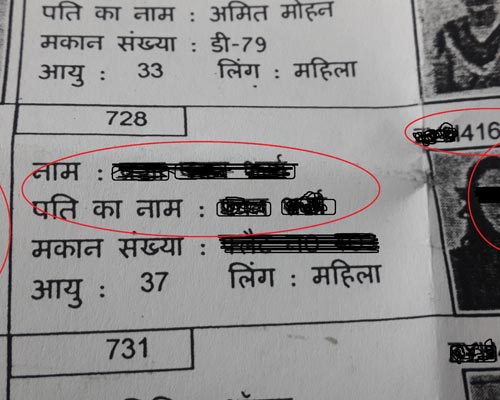 पति का नाम : अमित मोहन
मकान संख्या : डी-79
आयु : 33 लिंग : महिला
728
416
नाम :
पति का नाम :
मकान संख्या :
आयु : 37 लिंग : महिला
731